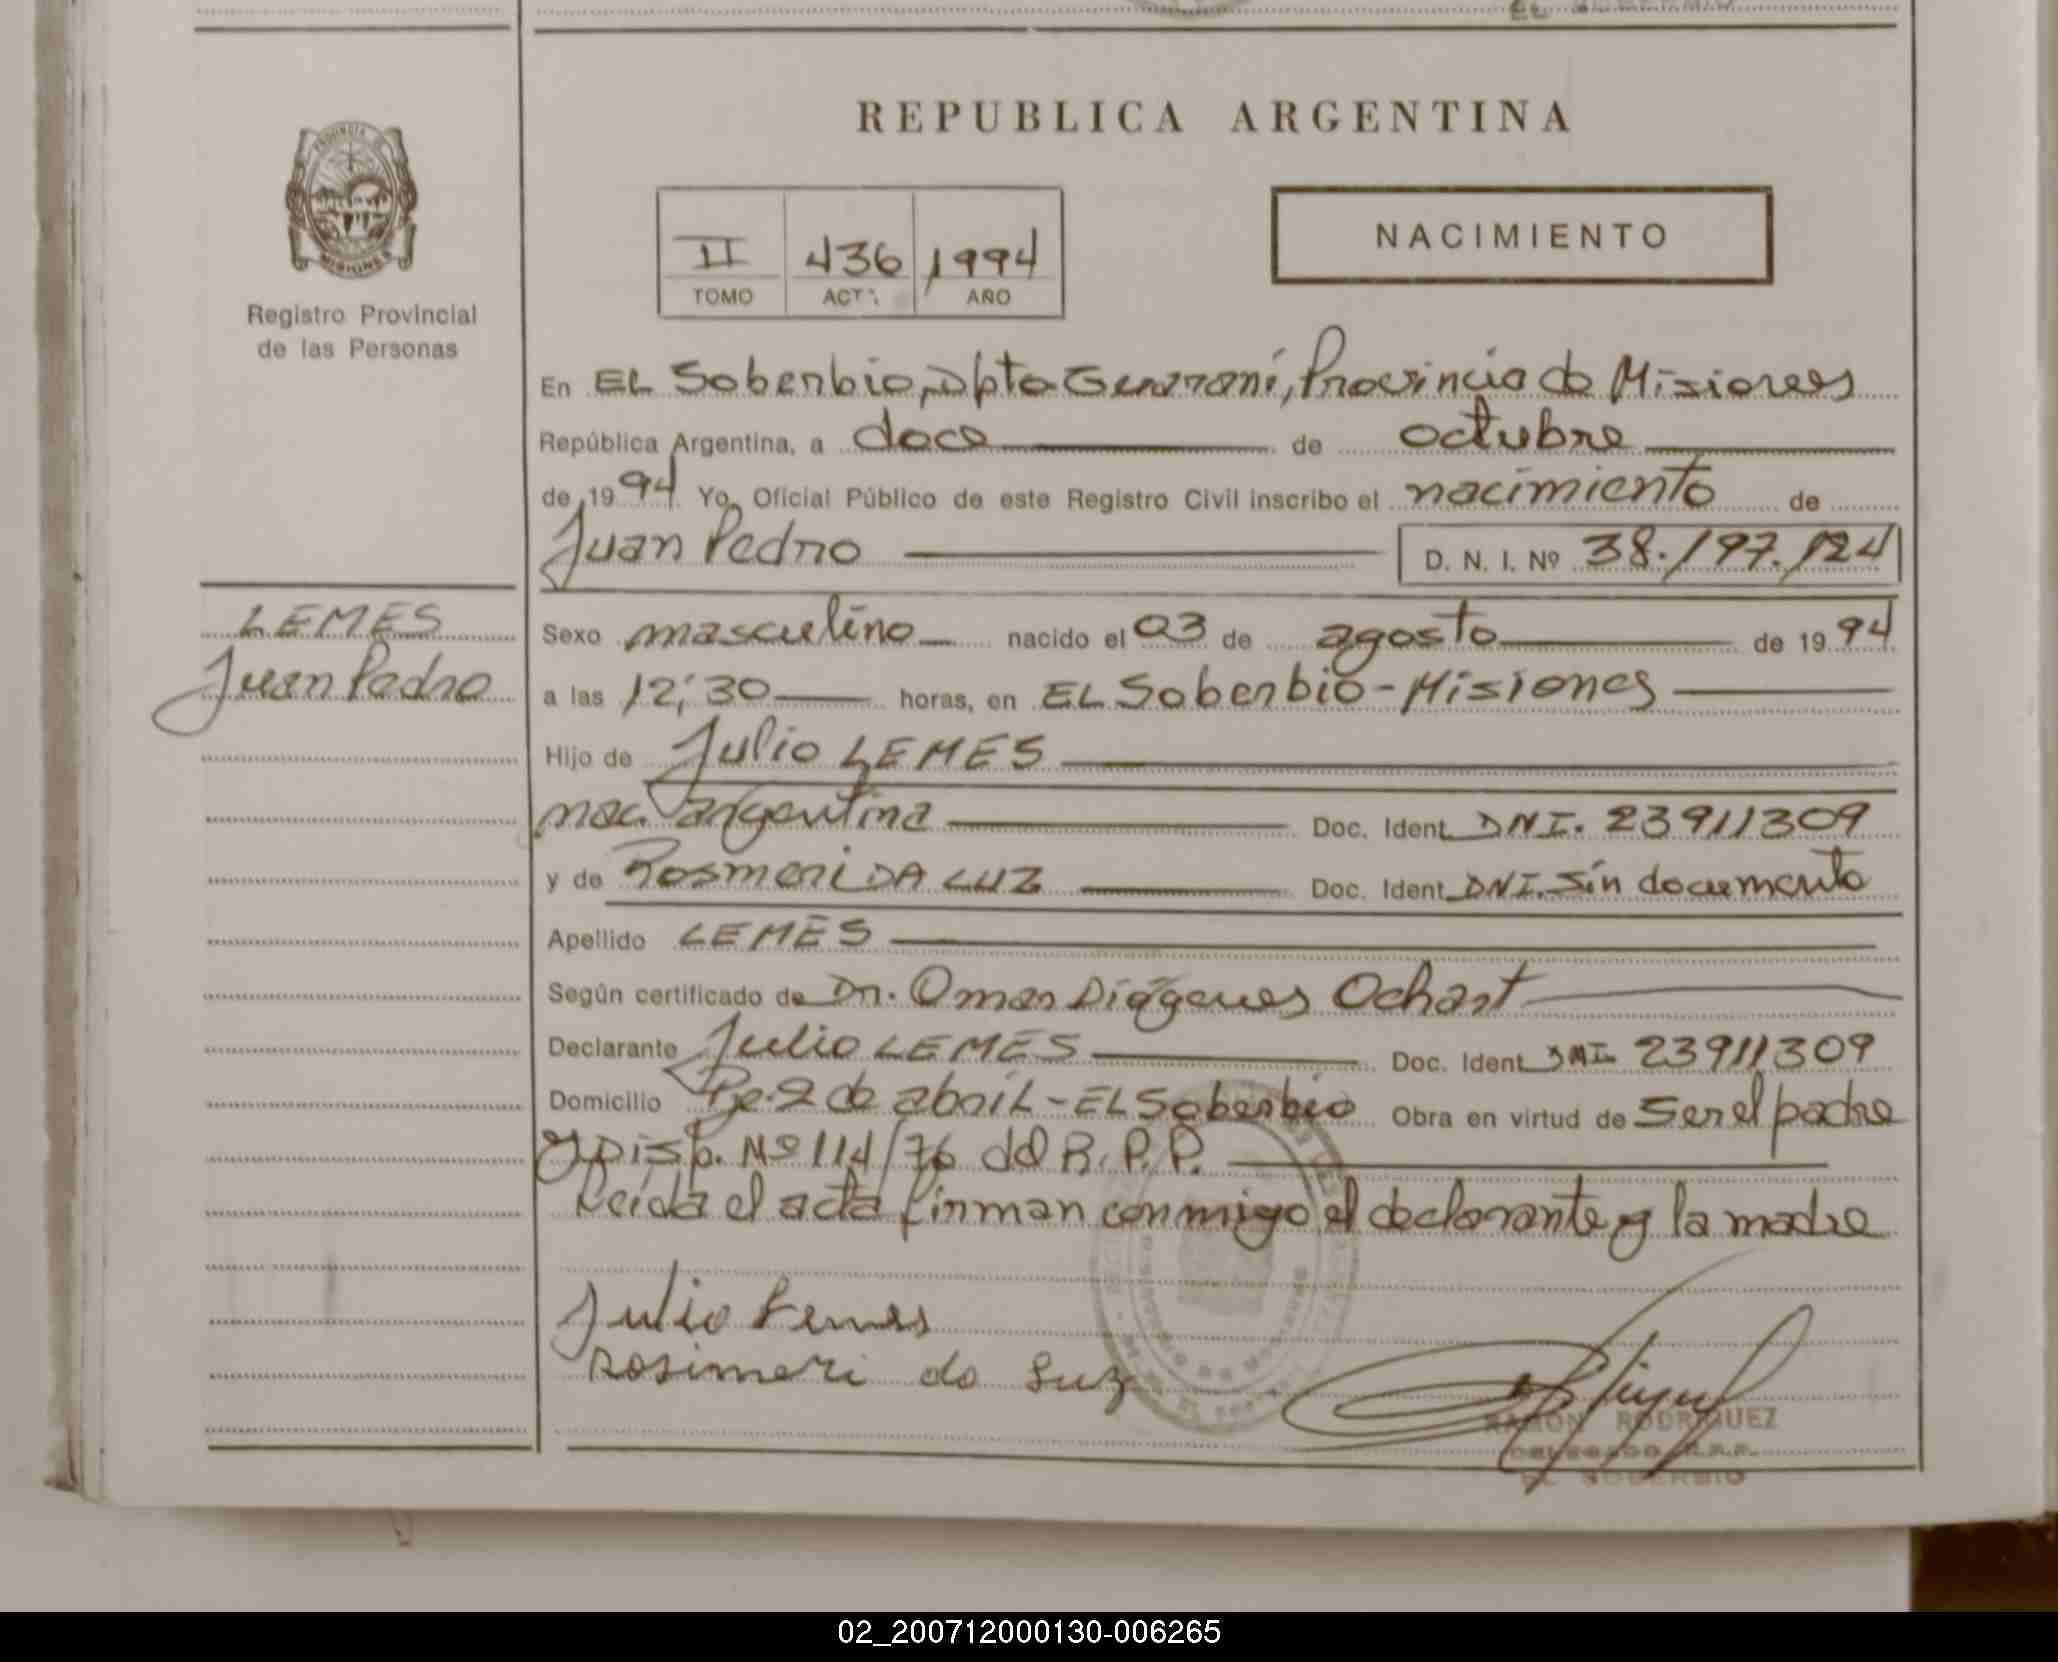 REPUBLICA ARGENTINA
PROVINCIA
MISIONES
Registro Provincial
de las Personas
II 436 1994
TOMO ACTA AÑO
NACIMIENTO
En EL Soberbio, Dpto Guaraní, Provincia de Misiones
República Argentina, a doce de octubre
de 1994 Yo, Oficial Público de este Registro Civil inscribo el nacimiento de
Juan Pedro D. N. I. Nº 38.197.124
LEMES
Juan Pedro
Sexo masculino nacido el 03 de agosto de 1994
a las 12;30 horas, en EL Soberbio - Misiones
Hijo de Julio LEMES
nac. argentina Doc. Ident. DNI. 23911309
y de Rosmeri DA LUZ Doc. Ident. DNI. Sin documento
Apellido LEMES
Según certificado de Dr. Omar Diógenes Ochart
Declarante Julio LEMES Doc. Ident. DNI. 23911309
Domicilio Pje. 2 de abril - EL Soberbio Obra en virtud de Ser el padre
y Disp. Nº 114/76 del R.P.P.
Leída el acta firman conmigo el declarante y la madre
Julio Lemes
Rosimeri da Luz
RAMON RODRIGUEZ
DELEGADO R.P.P.
EL SOBERBIO
02_200712000130-006265